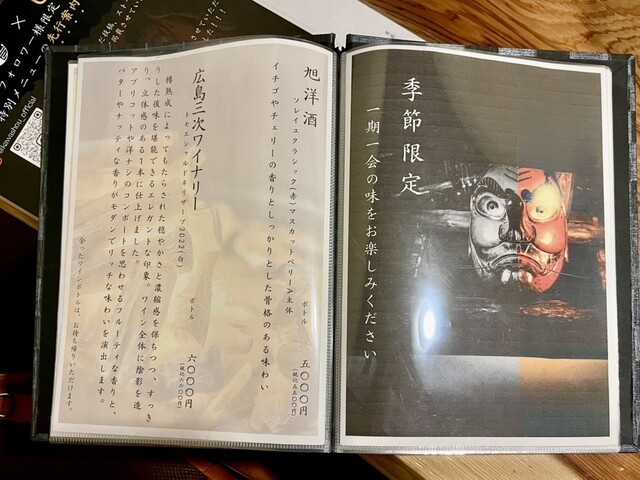 季節限定
一期一会の味をお楽しみください
旭洋酒
ソレイユクラシック(赤)マスカットベリーA主体
ボトル
五〇〇〇円
(税込五五〇〇円)
イチゴやチェリーの香りとしっかりとした骨格のある味わい
広島三次ワイナリー
トモエシャルドネリザーブ2022(白)
ボトル
六〇〇〇円
(税込六六〇〇円)
樽熟成によってもたらされた穏やかさと濃縮感を保ちつつ、すっき
りした後味を堪能できるエレガントな印象。ワイン全体に陰影を造
り、立体感のある1本に仕上げました。
アプリコットや洋ナシのコンポートを思わせるフルーティな香りと、
バターやナッティな香りがモダンでリッチな味わいを演出します。
余ったワインボトルは、お持ち帰りいただけます。
フォロワー様限定
特別メニュー
先行案内